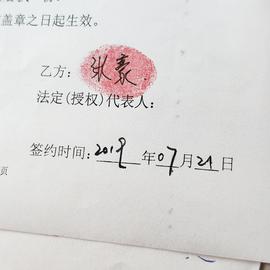 盖章之日起生效。
乙方:
法定(授权)代表人:
签约时间: 2019 年 07 月 21 日
页